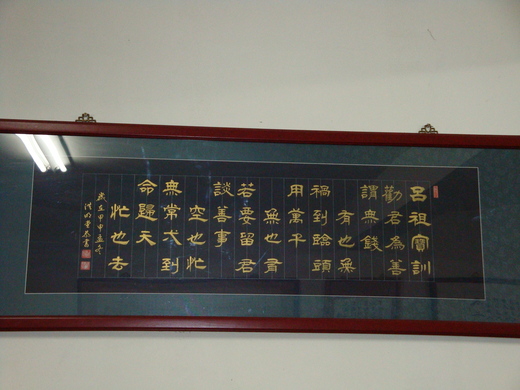 呂祖寶訓
勸君為善
謂無錢
有也無
禍到臨頭
用萬千
無也有
若要留君
談善事
空也忙
無常弌到
命歸天
忙也去
歲在甲申孟冬
恭書